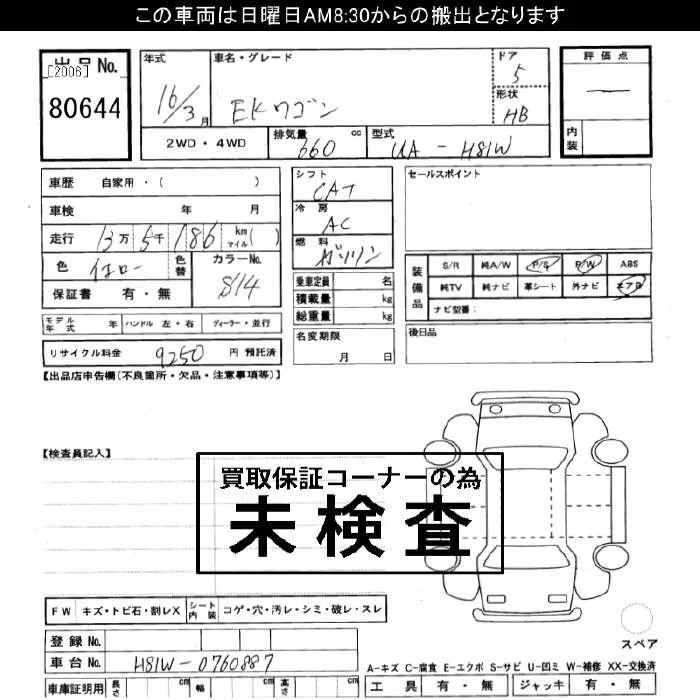 この車両は日曜日AM8:30からの搬出となります
出品 No.
[2006]
80644
年式
16/3月
車名・グレード
EKワゴン
ドア
5
形状
HB
評価点
—
内装
2WD・4WD
排気量 660 cc
型式 UA-H81W
車歴 自家用・( )
車検 年 月
走行 13万5千186 km マイル( )
色 イエロー 色替 カラーNo. S14
保証書 有・無
シフト CAT
冷房 AC
燃料 ガソリン
乗車定員 名
積載量 kg
総重量 kg
セールスポイント
装備品
S/R 純A/W P/S P/W ABS
純TV 純ナビ 革シート 外ナビ エアB
ナビ型番:
モデル年式 年 ハンドル 左・右 ディーラー・並行
名変期限
月 日
後日品
リサイクル料金 9250 円 預託済
【出品店申告欄(不良箇所・欠品・注意事項等)】
【検査員記入】
買取保証コーナーの為
未検査
FW キズ・トビ石・割レX シート内装 コゲ・穴・汚レ・シミ・破レ・スレ
スペア
登録 No.
車台 No. H81W-0760887
A-キズ C-腐食 E-エクボ S-サビ U-凹ミ W-補修 XX-交換済
車庫証明用 長さ cm 幅 cm 高さ cm
工具 有・無 ジャッキ 有・無